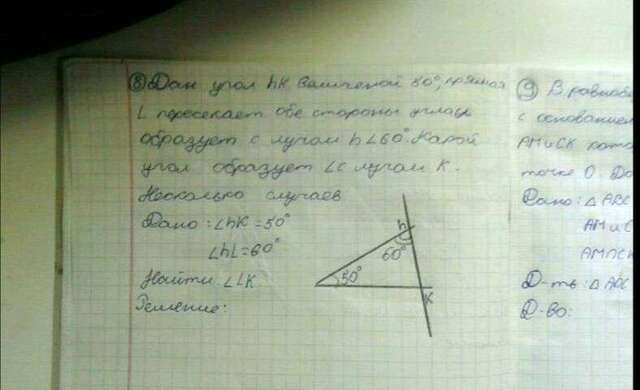 ⑧ Дан угол hK Величеной 50°, прямая
L пересекает обе стороны угла и
образует с лучом h ∠60°. Какой
угол образует L с лучом K.
Несколько случаев
Дано: ∠hK = 50°
∠hL = 60°
Найти: ∠LK
Решение:
h
60°
50°
K
⑨ В равнобе
с основанием
AM и CK
точке O. До
Дано: △ ABC
AM и C
AM∩CK
Д-ть: △ ADC
Д-во: